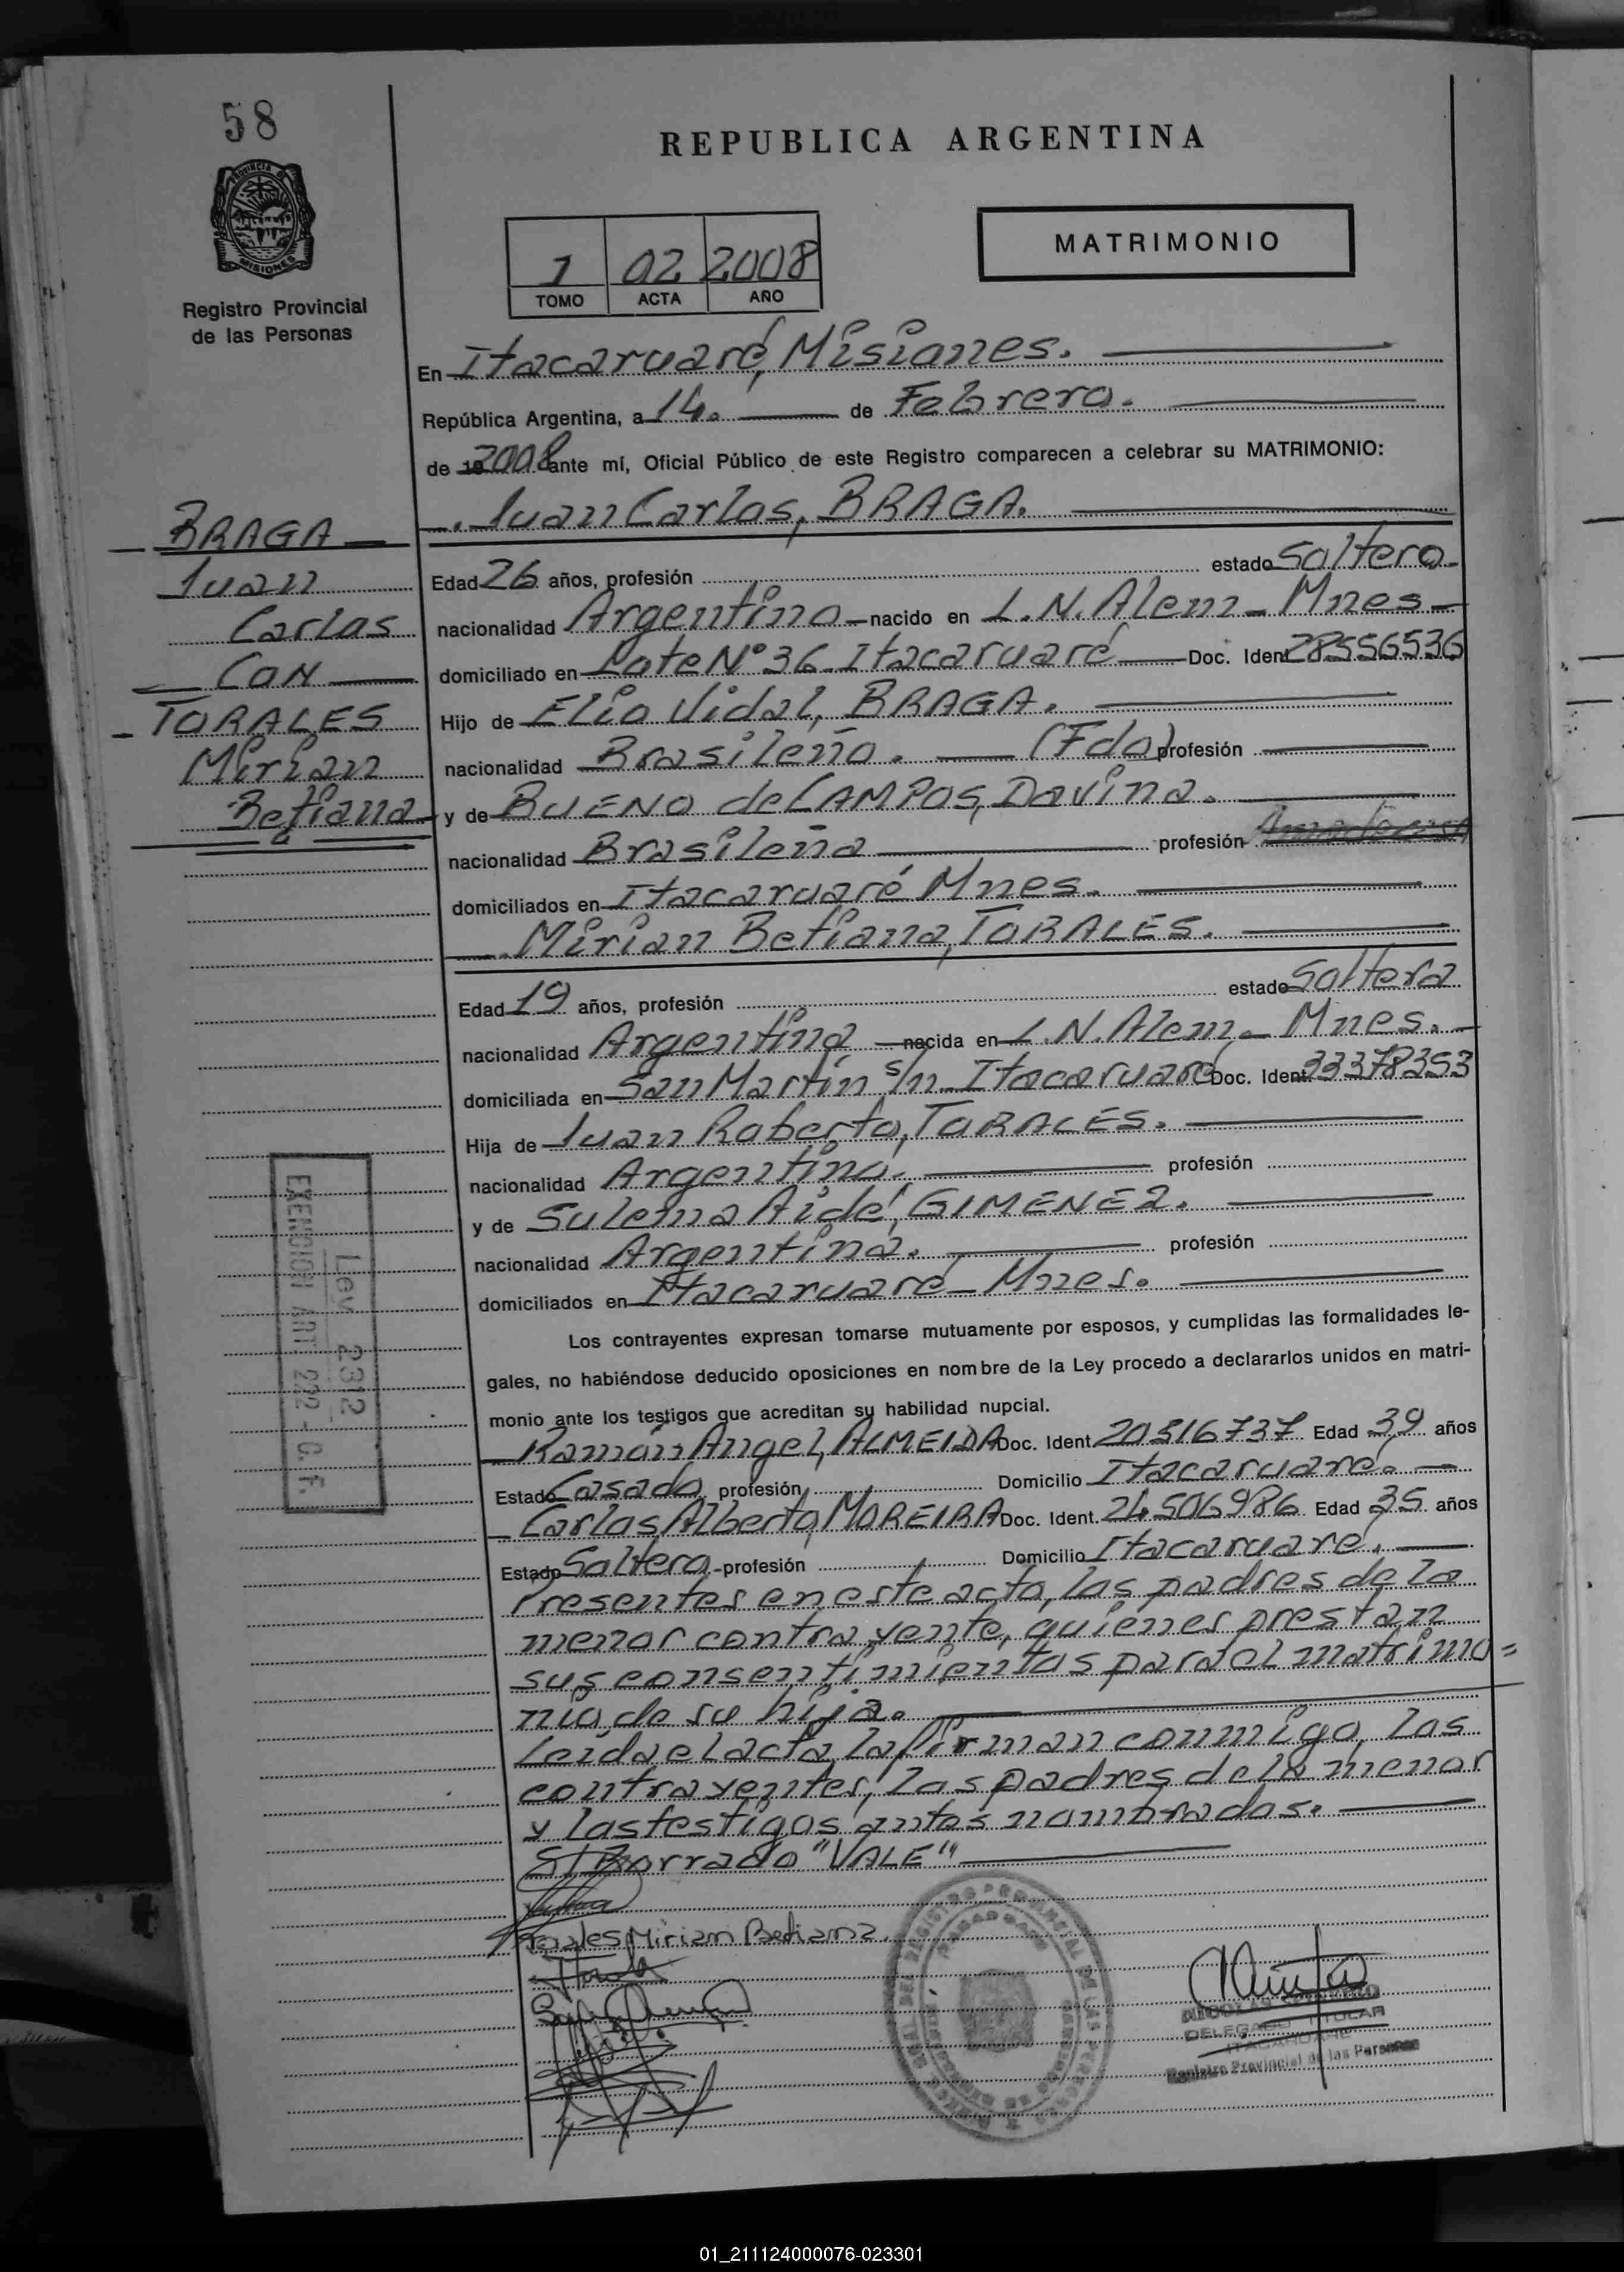 58
REPUBLICA ARGENTINA
PROVINCIA DE
MISIONES
Registro Provincial
de las Personas
1 02 2008
TOMO ACTA AÑO
MATRIMONIO
En Itacaruaré, Misiones.
República Argentina, a 14. de Febrero.
de 19 2008 ante mí, Oficial Público de este Registro comparecen a celebrar su MATRIMONIO:
Juan Carlos, BRAGA.
BRAGA
Juan
Carlos
CON
TORALES
Mirian
Betiana
Edad 26 años, profesión estado Soltero.
nacionalidad Argentino nacido en L.N.Alem - Mnes -
domiciliado en Lote Nº 36 Itacaruaré Doc. Ident 28556536
Hijo de Elio Vidal, BRAGA.
nacionalidad Brasileño. (Fdo) profesión
y de BUENO de CAMPOS, Davina.
nacionalidad Brasileña profesión
domiciliados en Itacaruaré Mnes.
Mirian Betiana, TORALES.
Edad 19 años, profesión estado Soltera
nacionalidad Argentina nacida en L.N.Alem - Mnes. -
domiciliada en San Martín s/n Itacaruaré Doc. Ident. 33378353
Hija de Juan Roberto, TORALES.
nacionalidad Argentino. profesión
y de Sulema Aidé, GIMENEZ.
nacionalidad Argentina. profesión
domiciliados en Itacaruaré - Mnes.
Ley 2312
EXENCION ART. 222 - C. F.
Los contrayentes expresan tomarse mutuamente por esposos, y cumplidas las formalidades le-
gales, no habiéndose deducido oposiciones en nombre de la Ley procedo a declararlos unidos en matri-
monio ante los testigos que acreditan su habilidad nupcial.
Ramón Angel, ALMEIDA Doc. Ident. 20316737 Edad 39 años
Estado Casado profesión Domicilio Itacaruaré.
Carlos Alberto, MOREIRA Doc. Ident. 24506986 Edad 35 años
Estado Soltero profesión Domicilio Itacaruaré.
Presentes en este acto, los padres de la
menor contrayente, quienes prestan
sus consentimientos para el matrimo=
nio, de su hija.
Leida el acta, la firman conmigo, los
contrayentes, los padres de la menor
y los testigos antes nombrados.
S/Borrado "VALE"
Torales Mirian Betiana
DELEGADO TITULAR
ITACARUARE
Registro Provincial de las Personas
01_211124000076-023301